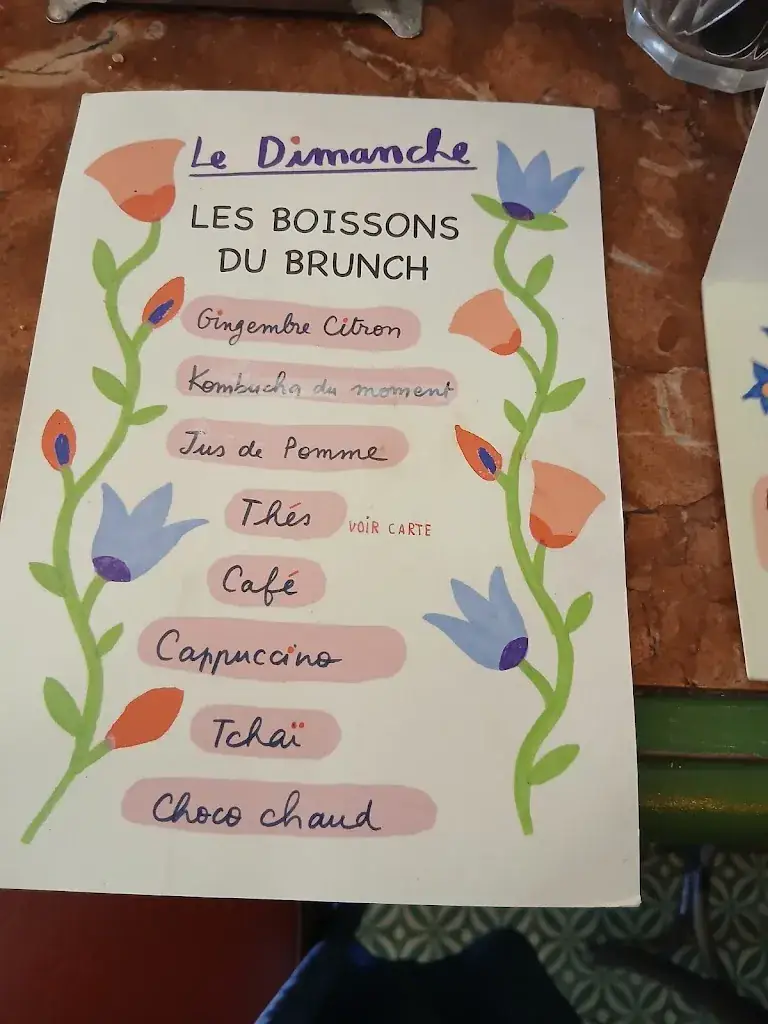 Le Dimanche
LES BOISSONS
DU BRUNCH
Gingembre Citron
Kombucha du moment
Jus de Pomme
Thés VOIR CARTE
Café
Cappuccino
Tchaï
Choco chaud